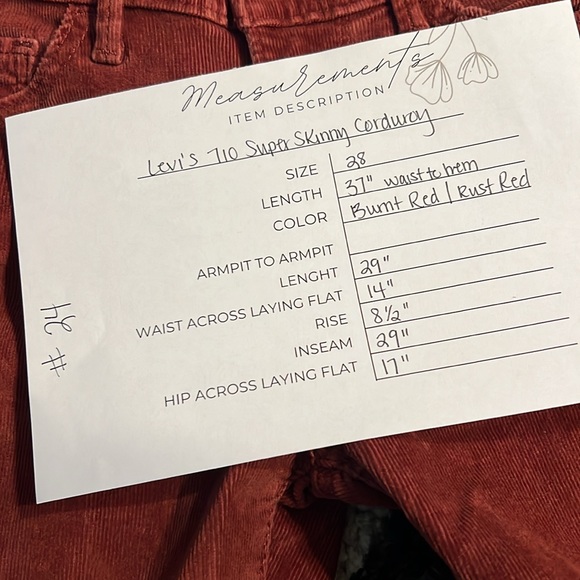 Measurements
ITEM DESCRIPTION
Levi's 710 Super Skinny Corduroy
SIZE 28
LENGTH 37" waist to hem
COLOR Burnt Red | Rust Red
ARMPIT TO ARMPIT
LENGHT 29"
WAIST ACROSS LAYING FLAT 14"
RISE 8½"
INSEAM 29"
HIP ACROSS LAYING FLAT 17"
# 24